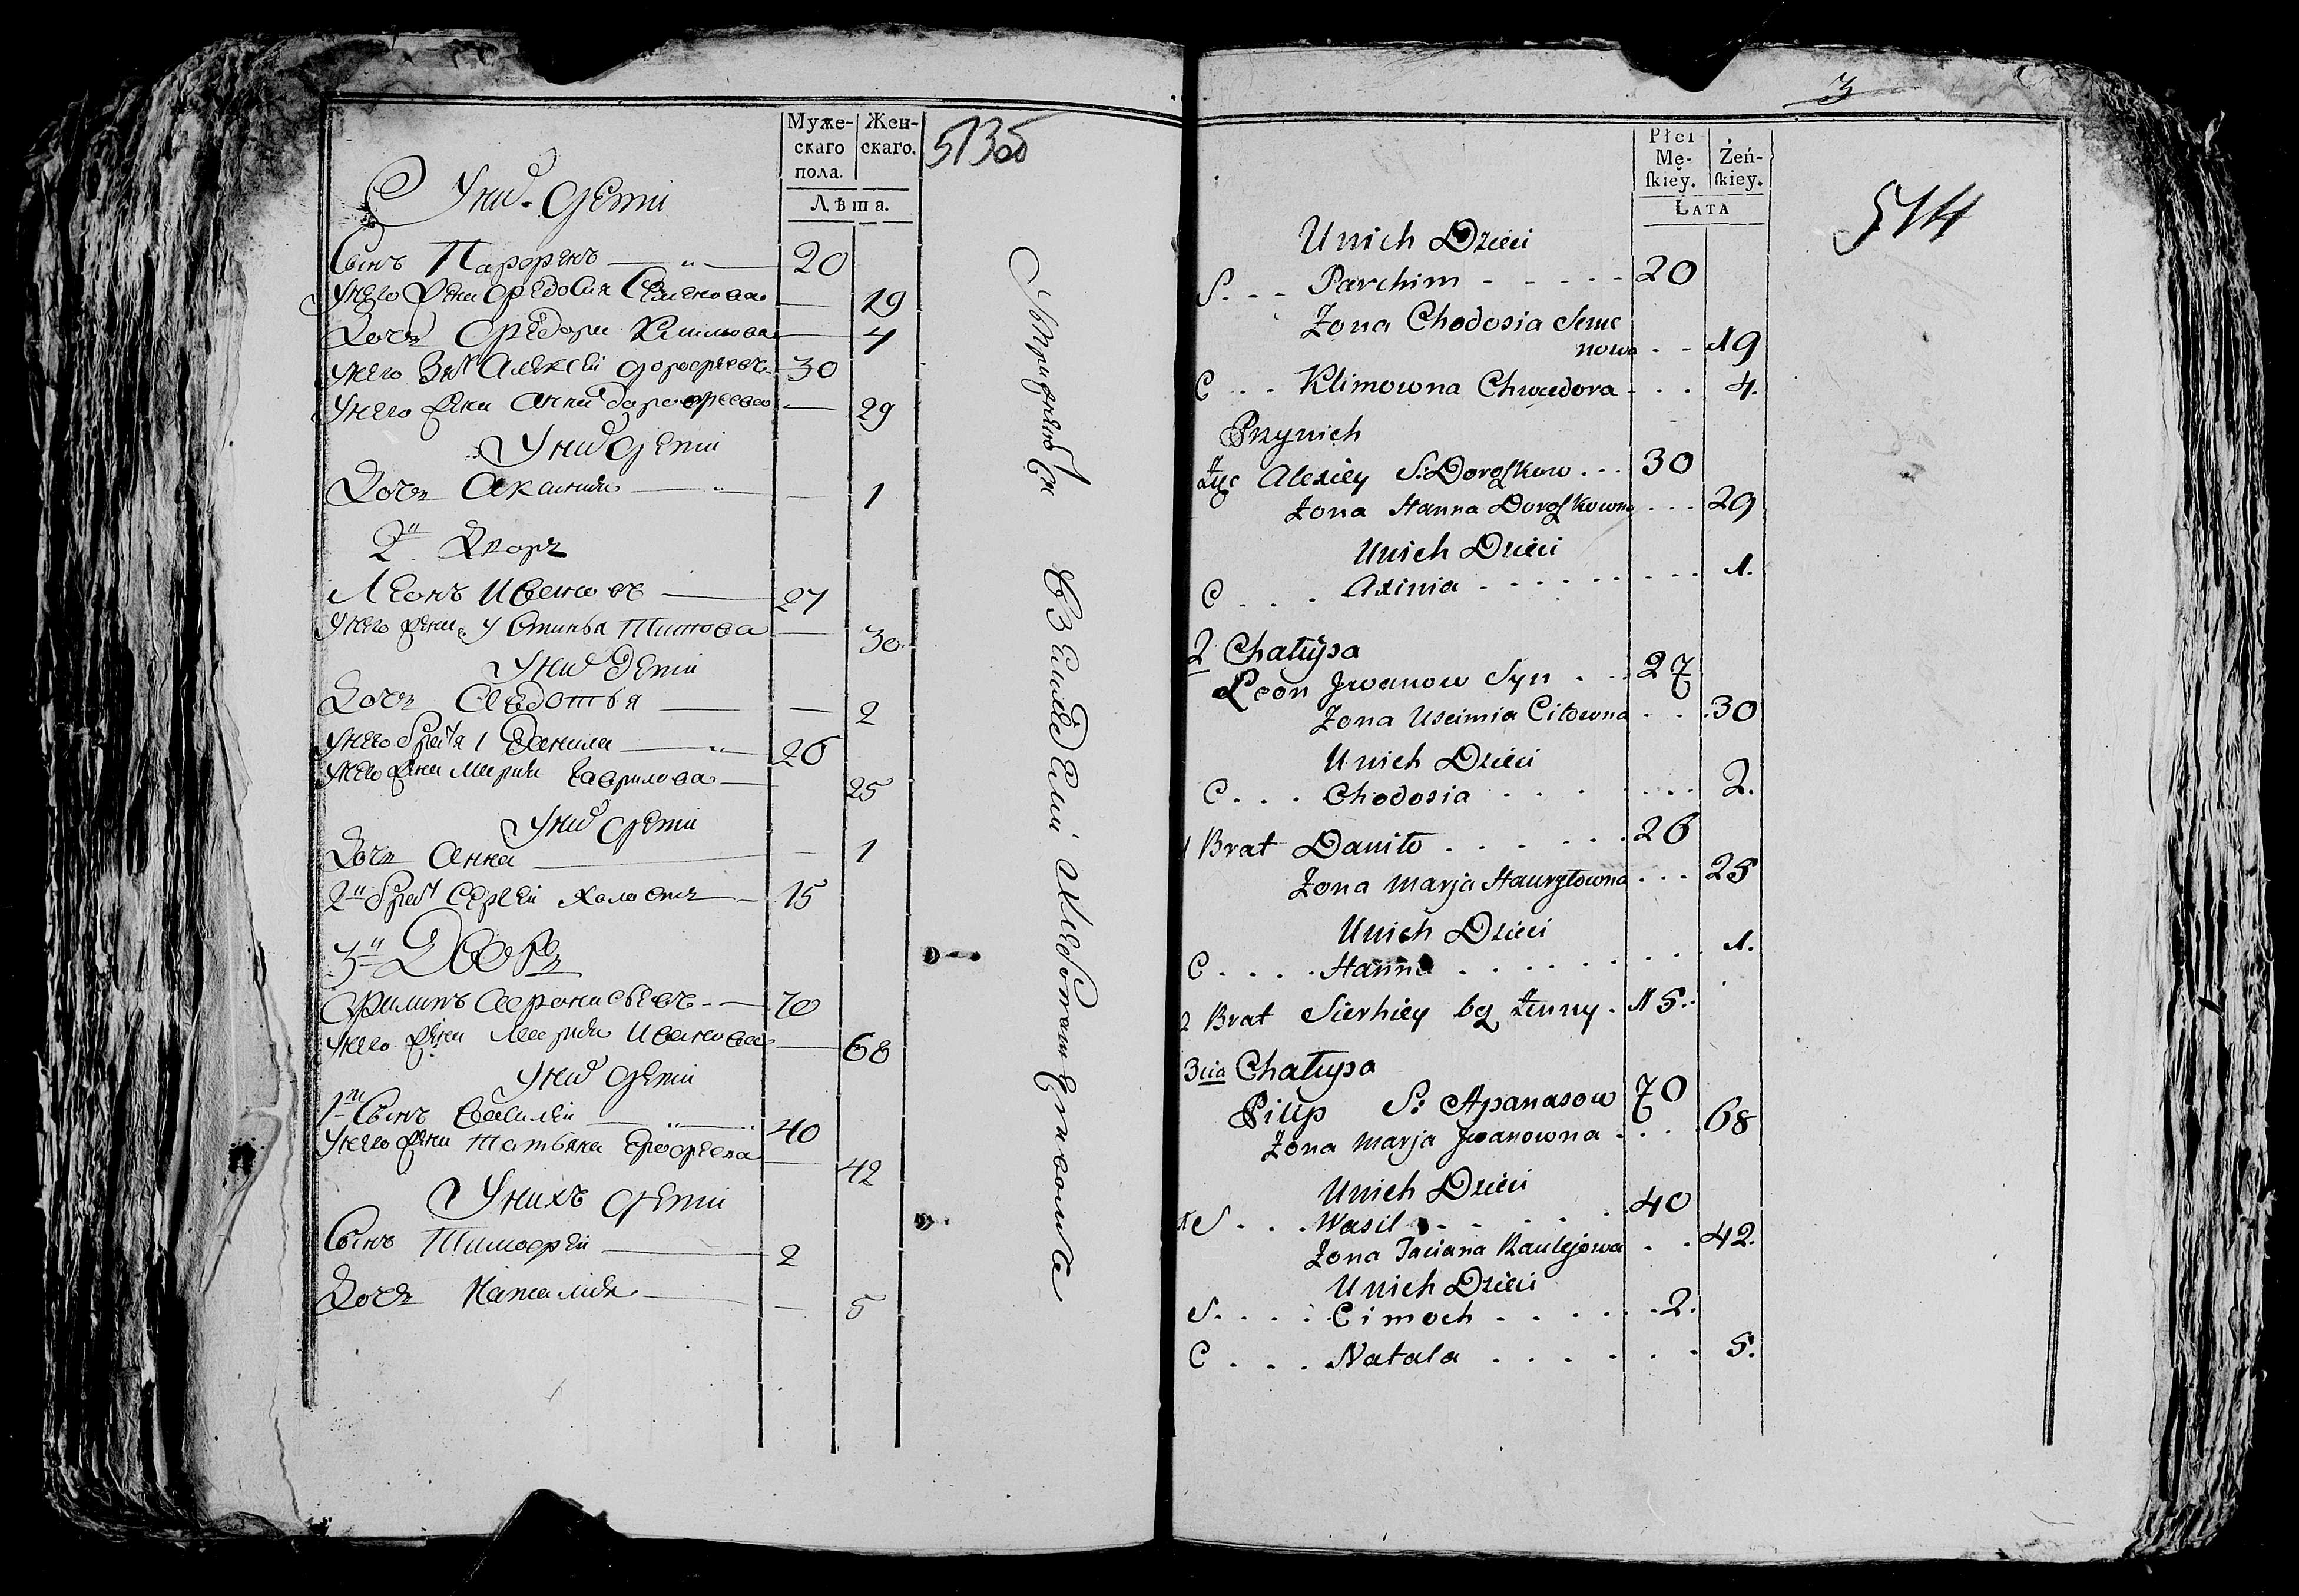 Муже-
скаго
пола.
Жен-
скаго.
Лѣта.
513об
У них дети
Сынъ Парфенъ 20
У него жена Федосия Семенова 19
Дочь Федора Климова 4
У него зят Алексей Дорофеевъ 30
У него жена Анна Дорофеева 29
У них дети
Дочь Аксиния 1
2й Дворъ
Леонъ Ивановъ 27
У него жена Устинья Титова 30
У них дети
Дочь Авдотья 2
У него брат 1 Данила 26
У него жена Мария Гаврилова 25
У них дети
Дочь Анна 1
2й брат Сергей холостъ 15
3й Дворъ
Филипъ Афонасьевъ 70
У него жена Мария Иванова 68
У нихъ дети
1й Сынъ Василей 40
У него жена Татьяна 42
У нихъ дети
Сынъ Тимофей 2
Дочь Наталия 5
3
514
Płci
Mę-
ſkiey.
Żeń-
ſkiey.
LATA
U nich Dzieci
S. Parchim 20
Żona Chodosia Seme
nowa 19
C Klimowna Chwedora 4.
Przy nich
Zięc Alexiey S: Doroſzkow 30
Żona Hanna Doroſzkowna 29
U nich Dzieci
C Axinia 1.
2 Chałupa
Leon Jwanow Syn 27
Żona Uscimia Citowna 30
U nich Dzieci
C Chodosia 2.
1 Brat Daniło 26
Żona Marja Hauryłowna 25
U nich Dzieci
C Hanna 1.
2 Brat Sierhiey bez Żenny 15.
3cia Chałupa
Pilip S: Apanasow 70
Żona Marja Jwanowna 68
U nich Dzieci
1 S Wasil 40
Żona Taciana 42.
U nich Dzieci
S. Cimoch 2.
C Natala 5.